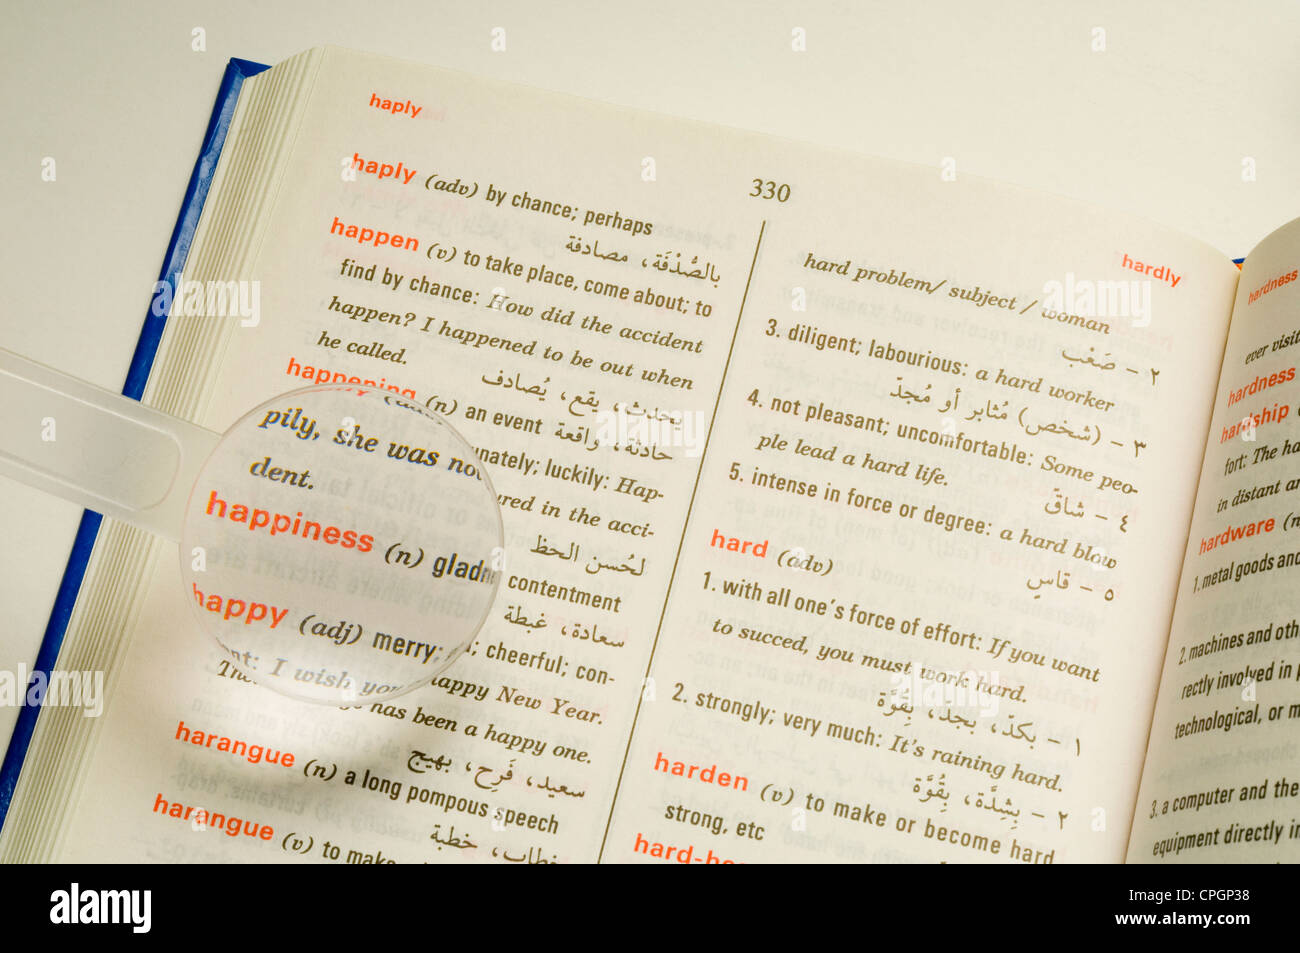 haply
330
hardly
haply (adv) by chance; perhaps
بالصُّدْفَة، مصادفة
happen (v) to take place, come about; to
find by chance: How did the accident
happen? I happened to be out when
he called.
يحدث، يقع، يُصادف
happening (n) an event
حادثة، واقعة
unately; luckily: Hap-
pily, she was not
ured in the acci-
dent.
لحُسن الحظ
happiness (n) gladn
contentment
سعادة، غبطة
happy (adj) merry;
; cheerful; con-
nt: I wish you
Happy New Year.
has been a happy one.
سعيد، فَرِح، بهيج
harangue (n) a long pompous speech
خطاب، خطبة
harangue (v) to make
hard problem/ subject / woman
٢ – صَعْب
3. diligent; labourious: a hard worker
٣ – (شخص) مُثابر أو مُجدّ
4. not pleasant; uncomfortable: Some peo-
ple lead a hard life.
٤ – شاقّ
5. intense in force or degree: a hard blow
٥ – قاسٍ
hard (adv)
1. with all one's force of effort: If you want
to succed, you must work hard.
١ – بكدّ، بجدّ، بِقُوَّة
2. strongly; very much: It's raining hard.
٢ – بِشِدَّة، بِقُوَّة
harden (v) to make or become hard
strong, etc
hard-he
hardness
ever visit
hardness
hardship
fort: The ha
in distant ar
hardware (n
1. metal goods and
2. machines and oth
rectly involved in p
technological, or m
3. a computer and the
equipment directly in
alamy
Image ID: CPGP38
www.alamy.com